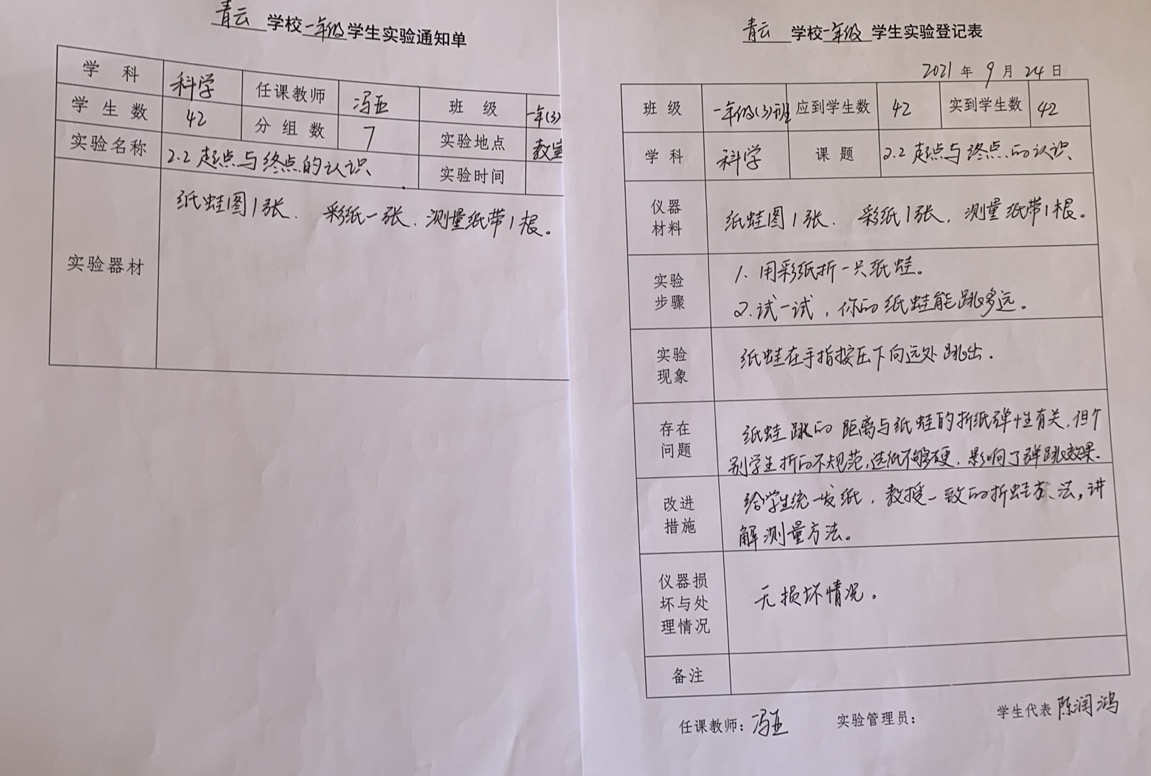 青云 学校一年级学生实验通知单
学 科 科学 任课教师 冯亚 班 级 一年(3)
学 生 数 42 分 组 数 7 实验地点 教室
实验名称 2.2 起点与终点的认识 实验时间
实验器材 纸蛙图1张、彩纸一张、测量纸带1根。
青云 学校一年级 学生实验登记表
2021 年 9 月 24 日
班 级 一年级(3)班 应到学生数 42 实到学生数 42
学 科 科学 课 题 2.2 起点与终点的认识
仪器材料 纸蛙图1张、彩纸1张、测量纸带1根。
实验步骤 1. 用彩纸折一只纸蛙。
2. 试一试，你的纸蛙能跳多远。
实验现象 纸蛙在手指按压下向远处跳出.
存在问题 纸蛙跳的距离与纸蛙的折纸弹性有关,但个
别学生折的不规范,选纸不够硬,影响了弹跳效果.
改进措施 给学生统一发纸，教授一致的折蛙方法,讲
解测量方法。
仪器损坏与处理情况 无损坏情况。
备注
任课教师：冯亚 实验管理员： 学生代表 陈润鸿